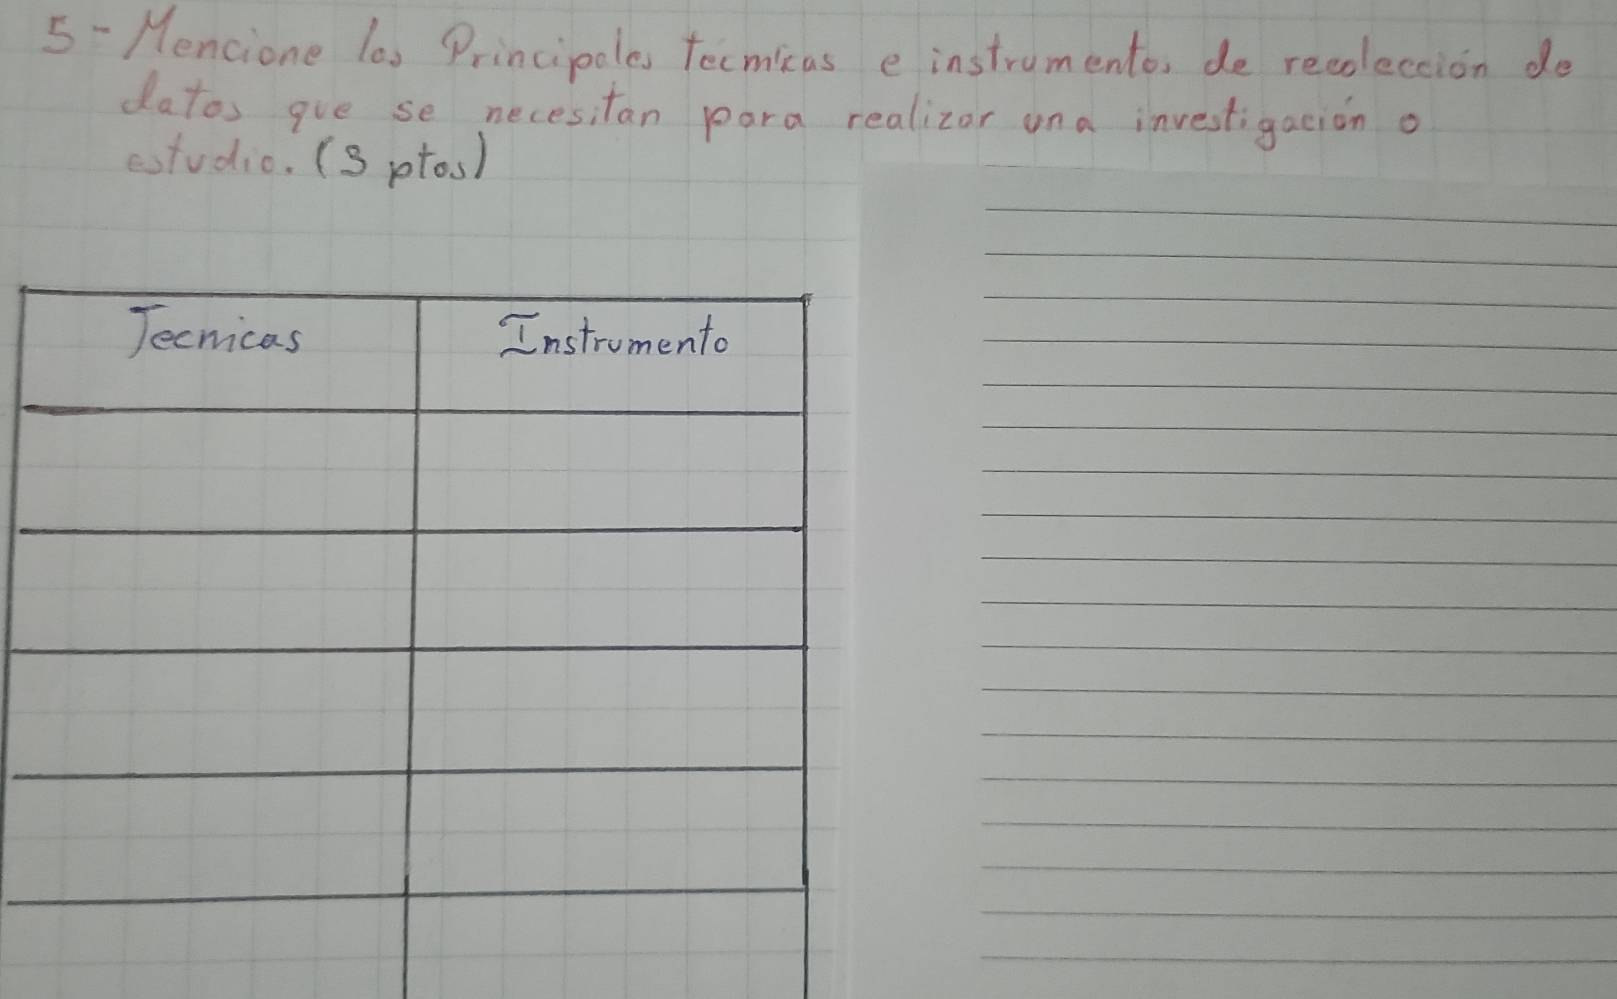 5- Mencione los Principales Tecnicas e instrumentos de recolección de
datos que se necesitan para realizar una investigación o
estudio. (3 ptos)
Tecnicas Instrumento